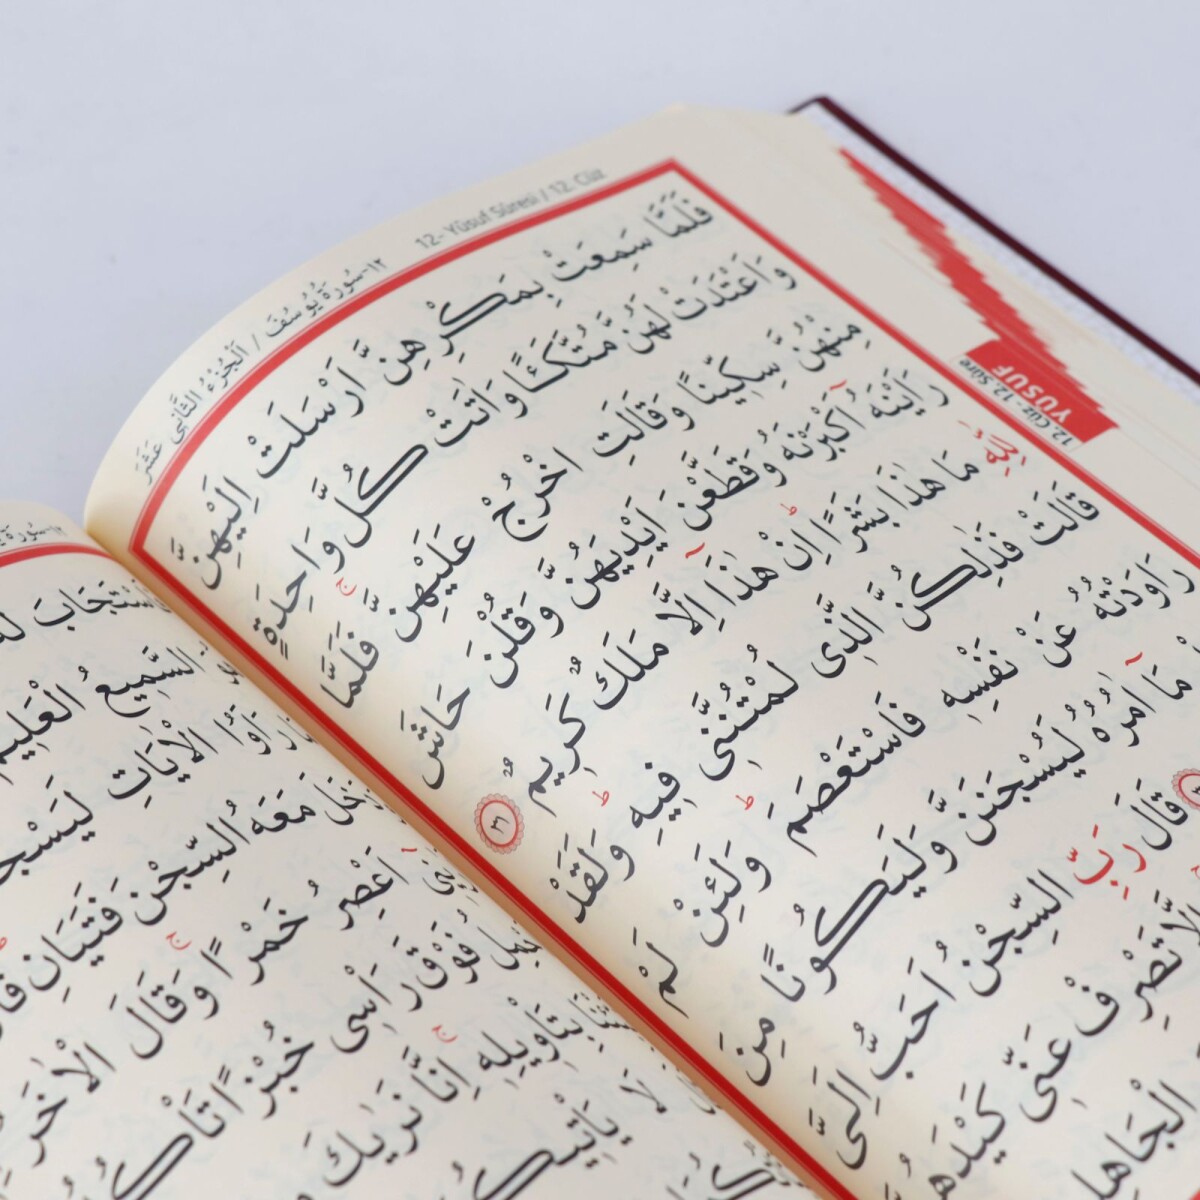 12- Yûsuf Sûresi / 12. Cüz
١٢-سُورَةُ يُوسُفَ / اَلْجُزْءُ الثَّانِي عَشَرَ
فَلَمَّا سَمِعَتْ بِمَكْرِهِنَّ اَرْسَلَتْ اِلَيْهِنَّ
وَاَعْتَدَتْ لَهُنَّ مُتَّكَـًٔا وَاٰتَتْ كُلَّ وَاحِدَةٍ
مِنْهُنَّ سِكّ۪ينًا وَقَالَتِ اخْرُجْ عَلَيْهِنَّۚ فَلَمَّا
رَاَيْنَهُٓ اَكْبَرْنَهُ وَقَطَّعْنَ اَيْدِيَهُنَّ وَقُلْنَ حَاشَ
مَا هٰذَا بَشَرًاۜ اِنْ هٰذَٓا اِلَّا مَلَكٌ كَر۪يمٌ
٣١
قَالَتْ فَذٰلِكُنَّ الَّذ۪ي لُمْتُنَّن۪ي ف۪يهِۜ وَلَقَدْ
رَاوَدْتُهُ عَنْ نَفْسِه۪ فَاسْتَعْصَمَۜ وَلَئِنْ لَمْ
مَٓا اٰمُرُهُ لَيُسْجَنَنَّ وَلَيَكُونًا مِنَ
قَالَ رَبِّ السِّجْنُ اَحَبُّ اِلَيَّ
تَصْرِفْ عَنّ۪ي كَيْدَهُنَّ
YUSUF
12.Cüz - 12.Sûre
فَاسْتَجَابَ لَهُ
السَّم۪يعُ الْعَل۪يمُ
رَاَوُا الْاٰيَاتِ لَيَسْجُنُنَّهُ
مَعَهُ السِّجْنَ فَتَيَانِۜ
اَعْصِرُ خَمْرًاۚ وَقَالَ الْاٰخَرُ
فَوْقَ رَاْس۪ي خُبْزًا تَاْكُلُ
بِتَاْو۪يلِه۪ۚ اِنَّا نَرٰيكَ
لَا يَاْت۪يكُمَا